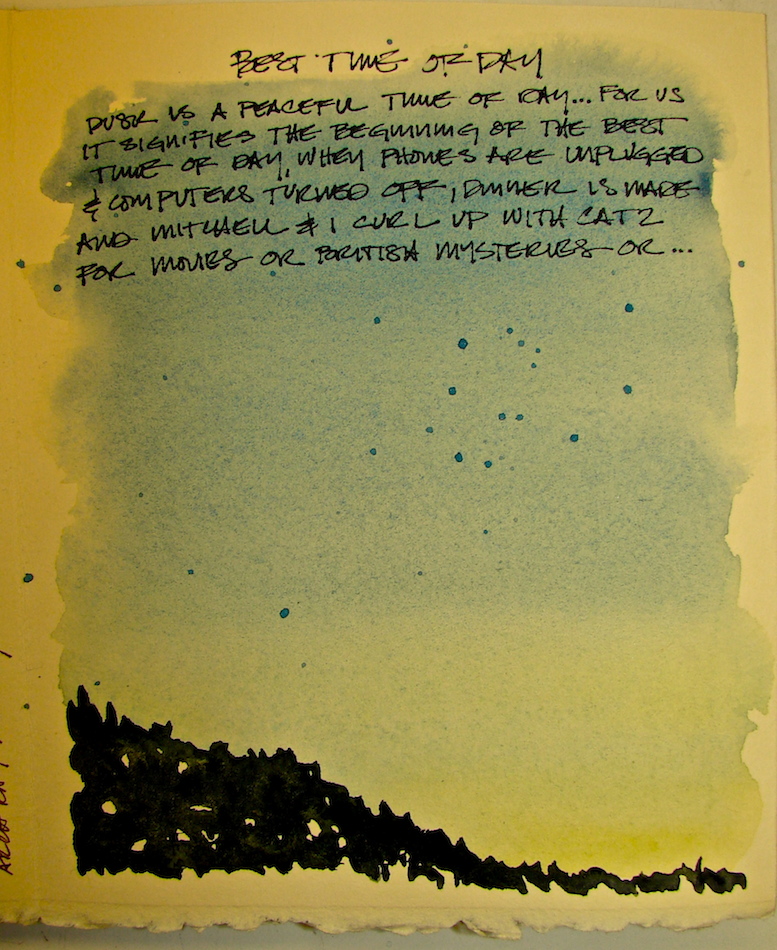 BEST TIME OF DAY
DUSK IS A PEACEFUL TIME OF DAY... FOR US
IT SIGNIFIES THE BEGINNING OF THE BEST
TIME OF DAY, WHEN PHONES ARE UNPLUGGED
& COMPUTERS TURNED OFF, DINNER IS MADE
AND MITCHELL & I CURL UP WITH CATZ
FOR MOVIES OR BRITISH MYSTERIES OR ...